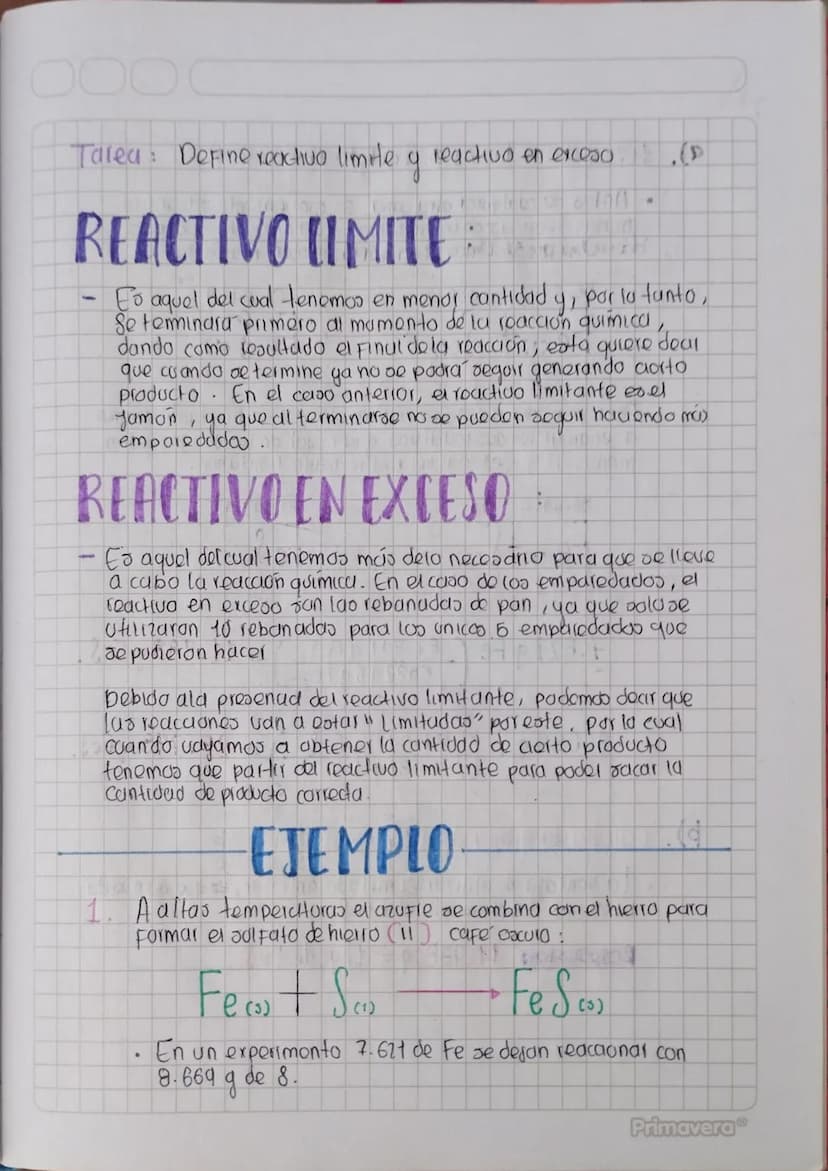 Tarea: Define reactivo limite y reactivo en exceso
REACTIVO LIMITE:
- Es aquel del cual tenemos en menor cantidad y, por lo tanto,
se terminará primero al momento de la reacción química,
dando como resultado el final de la reacción, esta quiere decir
que cuando se termine ya no se podrá seguir generando cierto
producto. En el caso anterior, el reactivo limitante es el
jamón, ya que al terminarse no se pueden seguir haciendo más
emparedados.
REACTIVO EN EXCESO:
- Es aquel del cual tenemos más de lo necesario para que se lleve
a cabo la reacción química. En el caso de los emparedados, el
reactivo en exceso son las rebanadas de pan, ya que solo se
utilizaron 10 rebanadas para los unicos 5 emparedados que
se pudieron hacer
Debido a la presencia del reactivo limitante, podemos decir que
las reacciones van a estar "limitadas" por este, por lo cual
cuando vayamos a obtener la cantidad de cierto producto
tenemos que partir del reactivo limitante para poder sacar la
cantidad de producto correcta.
EJEMPLO
1. A altas temperaturas el azufre se combina con el hierro para
formar el sulfato de hierro (II) café oscuro:
Fe(s) + S(l) → FeS(s)
· En un experimento 7.621 de Fe se dejan reaccionar con
8.669 g de S.
Primavera®